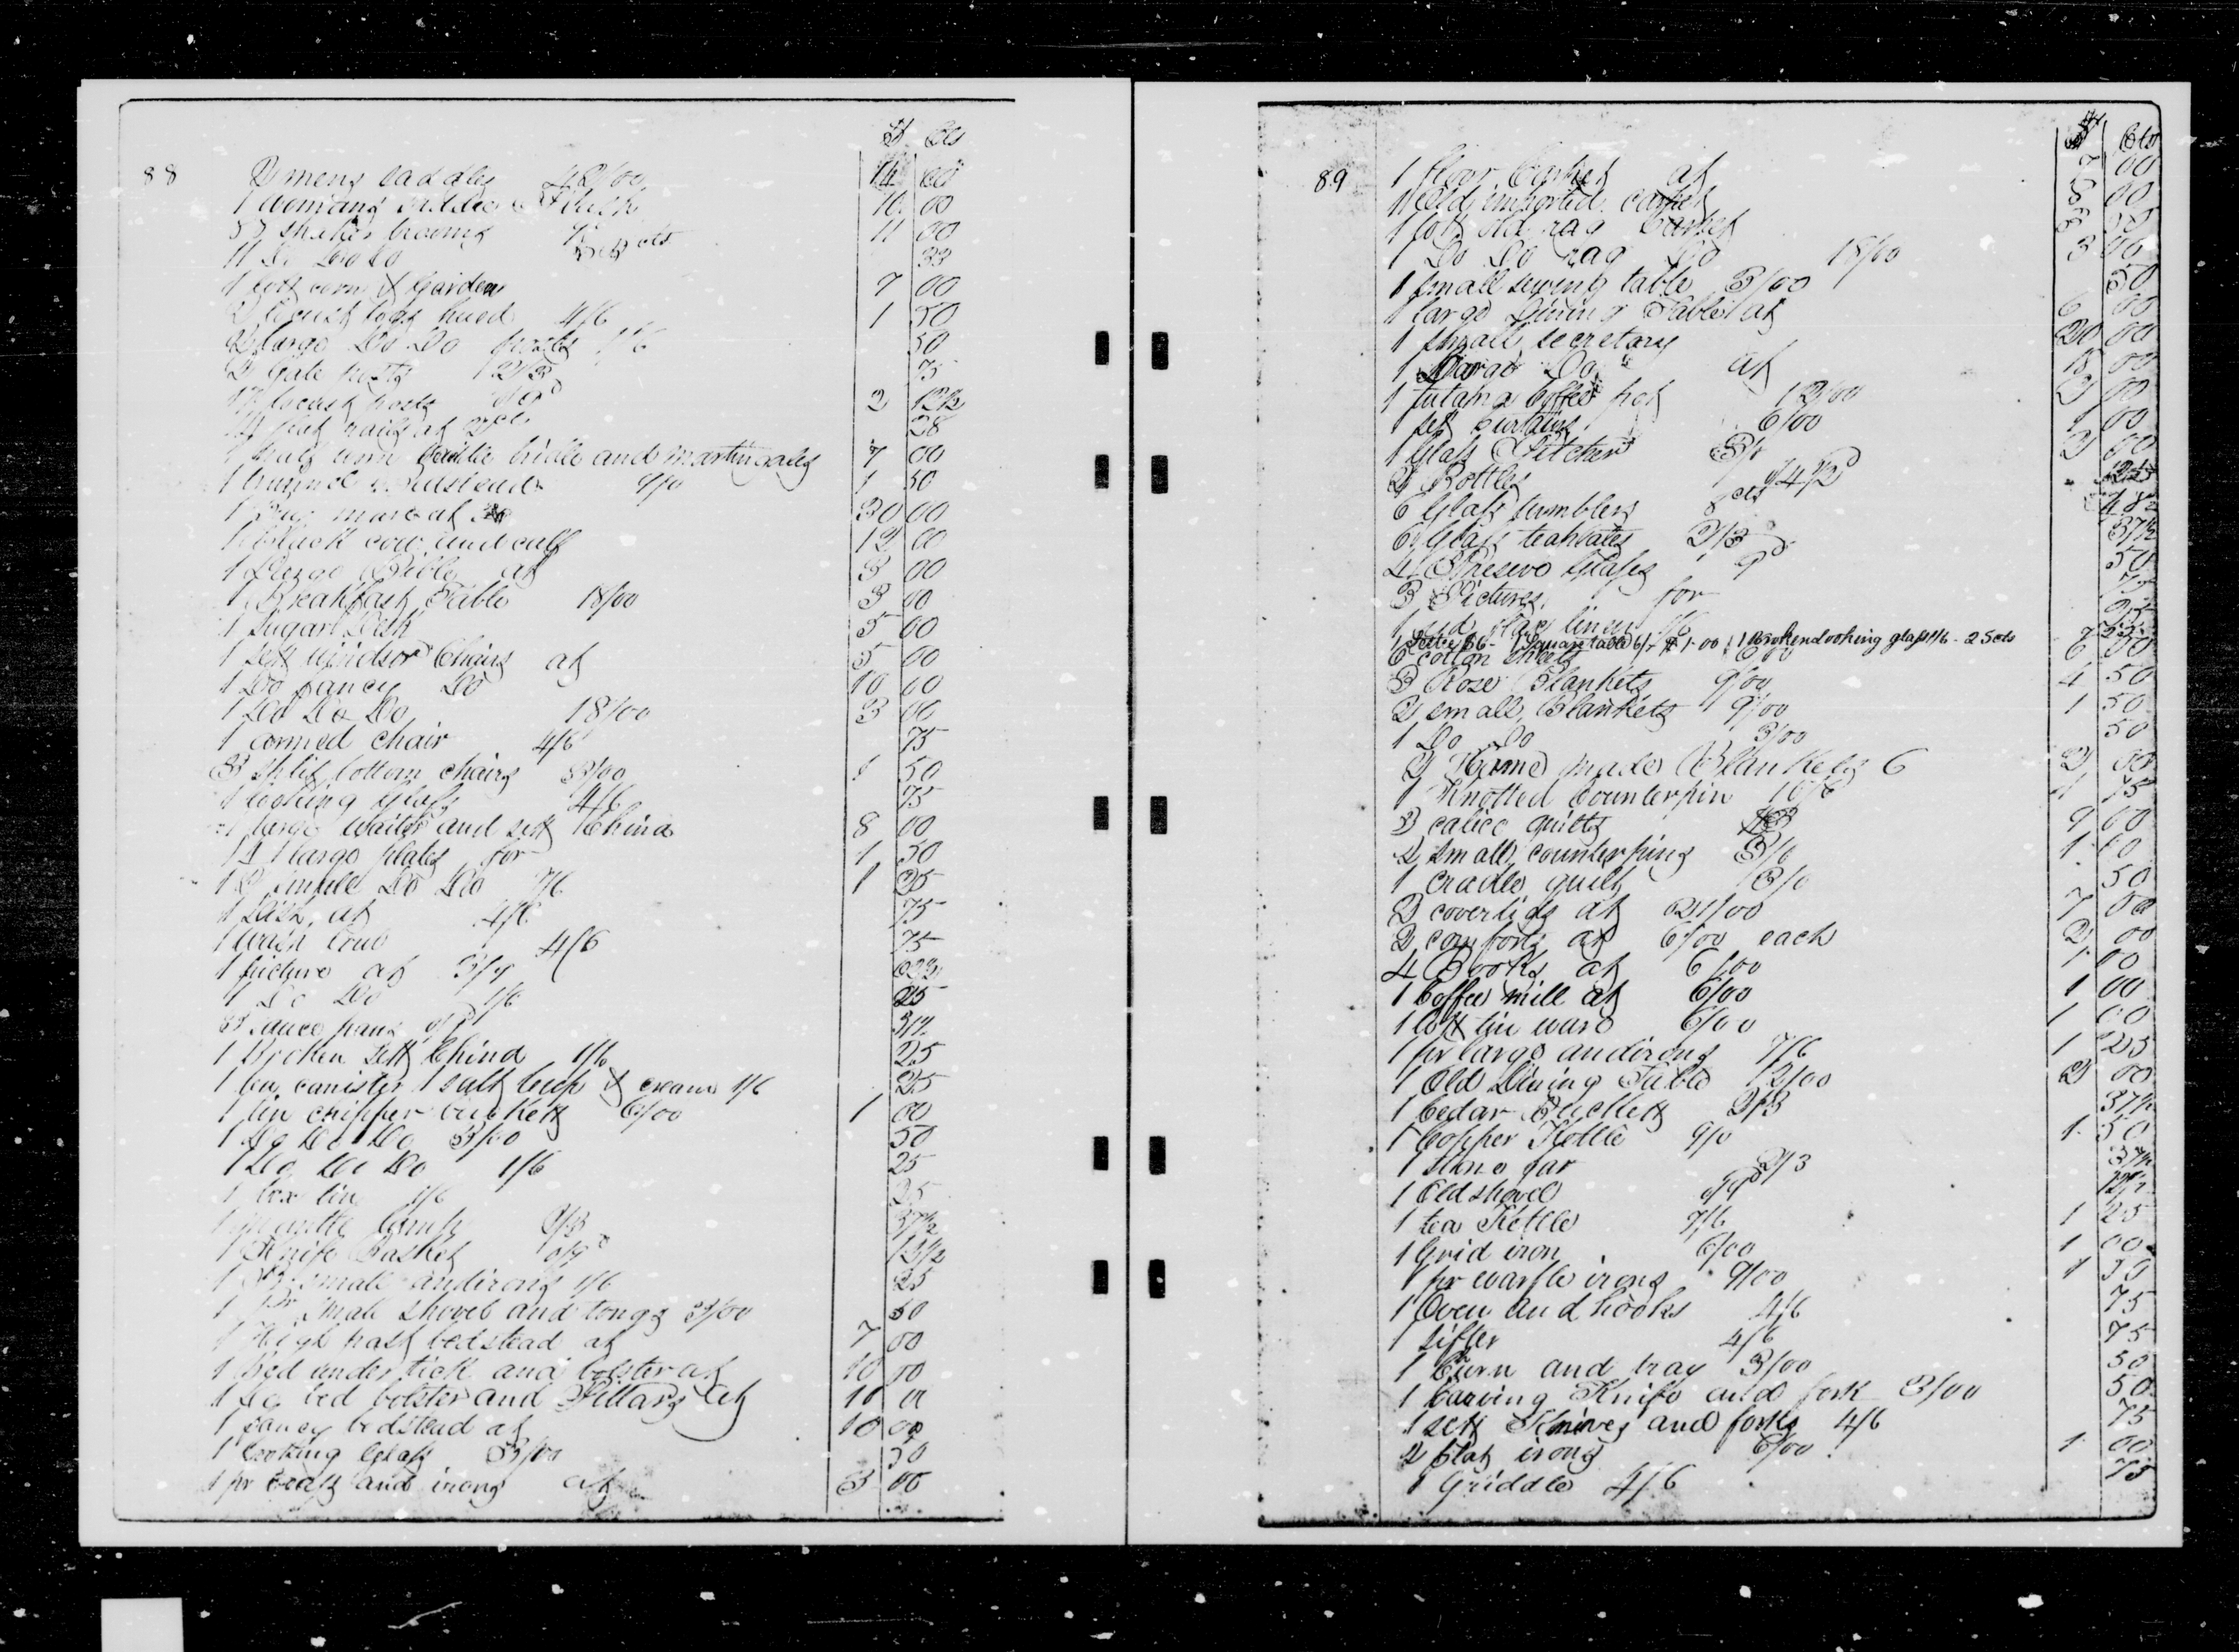 $ Cts
88 2 mens saddles 42/00 14 00
1 womans saddle 10 00
33 shaker brooms 11 00
11 Do Do Do 3 cts 33
1 lott corn & Garden 7 00
2 locust logs hued 4/6 1 50
2 large Do Do posts 1/6 50
2 Gate posts 2/3 75
17 locust posts 2 12½
rails at 2 cts 38
1 half worn saddle bridle and martingales 7 00
1 bedstead 9/0 1 50
1 mare at 30 00
1 black cow and calf 12 00
1 Large Bible at 3 00
1 Breakfast Table 18/00 3 00
1 Sugar Desk 5 00
1 sett windsor Chairs at 5 00
1 Do fancy Do 10 00
1 Do Do Do 18/00 3 00
1 armed chair 4/6 75
3 split bottom chairs 3/00 1 50
1 looking Glass 4/6 75
1 large waiter and sett China 8 00
14 large plates for 1 50
12 small Do Do 7/6 1 25
1 Dish at 4/6 75
1 wash bowl 4/6 75
1 picture at 3/9 62½
1 Do Do 1/6 25
3 sauce pans 37½
1 Broken sett China 1/6 25
1 tea canister 1 salt cup & cream 1/6 25
1 tin chipper buckett 6/00 1 00
1 Do Do Do 3/00 50
1 Do Do Do 1/6 25
1 box tin 1/6 25
1 mantle lamp 2/3 37½
1 Knife Basket 0/9 12½
1 Pr small andirons 1/6 25
1 Pr small shovel and tongs 3/00 50
1 High post bedstead at 7 00
1 Bed under tick and bolster at 10 00
1 Do bed bolster and Pillars at 10 00
1 fancy bedstead at 10 00
1 looking Glass 3/00 50
1 pr brass and irons at 3 00
$ Cts
89 1 floor Carpet at 7 00
1 Old imported carpet 5 00
1 lott old rag Carpet 3
1 Do Do rag Do 18/00 3 00
1 small sewing table 3/00 50
1 large Dining Table at 6 00
1 small secretary 20 00
1 Large Do at 15 00
1 Britania Coffee pot 12/00 2 00
1 set curtains 6/00 1 00
1 Glass Pitcher 2 00
2 Bottles 4½ 12½
6 Glass tumblers 8 cts 48
6 Glass teaplates 2/3 37½
4 Preserve Glasses 9d 50
3 Pictures for 75
1 linen 1/6 25
1 Square table 6/- $1-00 1 Broken looking glass 1/6 - 25 cts
6 cotton sheets 6/00 6 00
3 Rose Blankets 9/00 4 50
2 small Blankets 9/00 1 50
1 Do Do 3/00 50
2 Home made Blankets 6 2 00
1 Knotted Counterpin 10/6 1 75
3 calico quilts 18 9 00
2 small counterpins 3/0 1 00
1 cradle quilt 3/0 50
2 coverlids at 21/00 7 00
2 comforts at 6/00 each 2 00
4 Books at 6/00 1 00
1 Coffee mill at 6/00 1 00
1 lott tin ware 6/00 1 00
1 pr large andirons 7/6 1 25
1 Old Dining Table 12/00 2 00
1 Cedar Buckett 2/3 37½
1 Copper Kettle 9/0 1 50
1 stone jar 2/3 37½
1 Old shovel 0/9 12½
1 tea Kettle 7/6 1 25
1 Grid iron 6/00 1 00
1 pr waffle irons 9/00 1 50
1 Oven and hooks 4/6 75
1 sifter 4/6 75
1 Churn and tray 3/00 50
1 Carving Knife and fork 3/00 50
1 sett Knives and forks 4/6 75
2 flat irons 6/00 1 00
1 Griddle 4/6 75